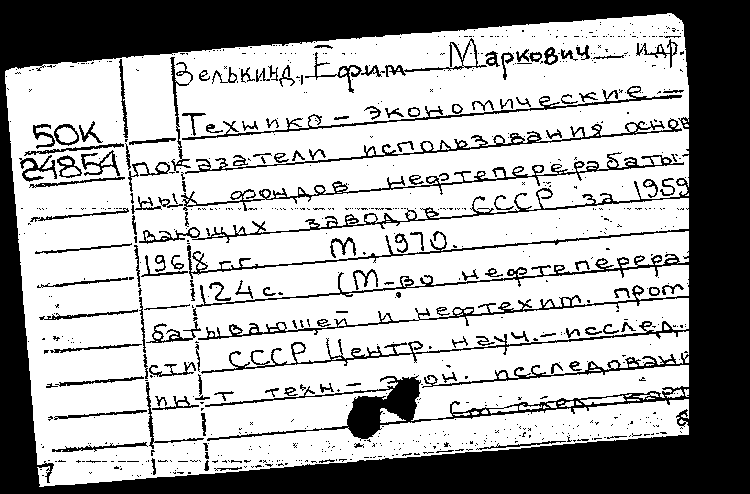 Зелькинд, Ефим Маркович и др.
Технико-экономические
50К
24854
показатели использования основ
ных фондов нефтеперерабаты-
вающих заводов СССР за 1959
1968 г.г. М., 1970.
124 с. (М-во нефтеперера-
батывающей и нефтехим. пром
сти СССР. Центр. науч.-исслед.
ин-т техн.-экон. исследовани
См. след. карт
7